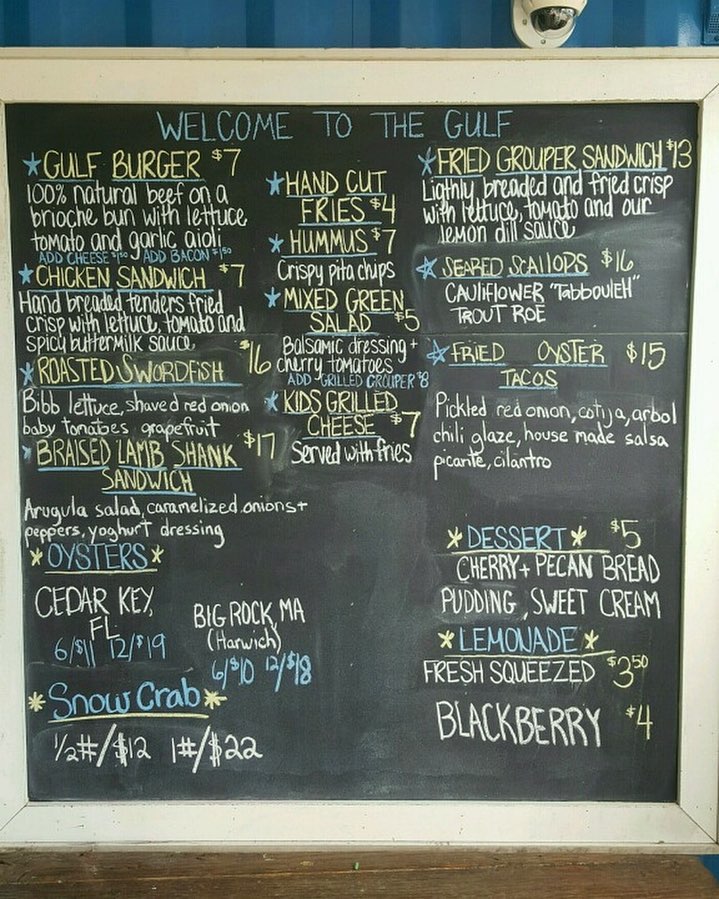 WELCOME TO THE GULF
GULF BURGER $7
100% natural beef on a
brioche bun with lettuce
tomato and garlic aioli
ADD CHEESE $1.50 ADD BACON $1.50
CHICKEN SANDWICH $7
Hand breaded tenders fried
crisp with lettuce, tomato and
spicy buttermilk sauce
ROASTED SWORDFISH $16
Bibb lettuce, shaved red onion
baby tomatoes grapefruit
BRAISED LAMB SHANK $17
SANDWICH
Arugula salad, caramelized onions +
peppers, yoghurt dressing
OYSTERS
CEDAR KEY,
FL
6/$11 12/$19
BIG ROCK, MA
(Harwich)
6/$10 12/$18
Snow Crab
1/2#/$12 1#/$22
HAND CUT
FRIES $4
HUMMUS $7
Crispy pita chips
MIXED GREEN
SALAD $5
Balsamic dressing +
cherry tomatoes
ADD GRILLED GROUPER $8
KIDS GRILLED
CHEESE $7
Served with fries
FRIED GROUPER SANDWICH $13
Ligthly breaded and fried crisp
with lettuce, tomato and our
lemon dill sauce
SEARED SCALLOPS $16
CAULIFLOWER "TABBOULEH"
TROUT ROE
FRIED OYSTER $15
TACOS
Pickled red onion, cotija, arbol
chili glaze, house made salsa
picante, cilantro
DESSERT $5
CHERRY + PECAN BREAD
PUDDING, SWEET CREAM
LEMONADE
FRESH SQUEEZED $3.50
BLACKBERRY $4